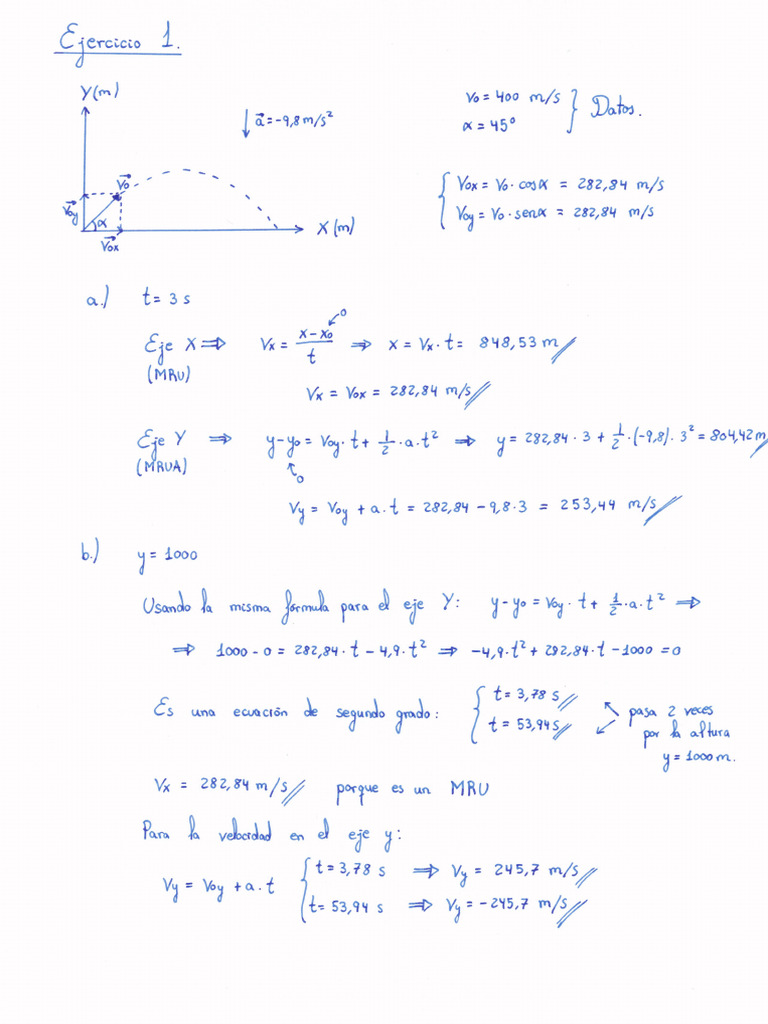 Ejercicio 1.
Y(m)
a⃗ = -9,8 m/s²
v₀ = 400 m/s
α = 45º
} Datos.
v⃗₀
v⃗₀y
α
v⃗₀x
X(m)
{ V₀x = V₀ · cosα = 282,84 m/s
V₀y = V₀ · senα = 282,84 m/s
a.) t = 3 s
Eje X ⇒ Vx = (x - x₀)/t ⇒ x = Vx · t = 848,53 m
0
(MRU)
Vx = V₀x = 282,84 m/s
Eje Y ⇒ y - y₀ = V₀y · t + 1/2 · a · t² ⇒ y = 282,84 · 3 + 1/2 · (-9,8) · 3² = 804,42 m
(MRUA)
0
Vy = V₀y + a · t = 282,84 - 9,8 · 3 = 253,44 m/s
b.) y = 1000
Usando la misma fórmula para el eje Y: y - y₀ = V₀y · t + 1/2 · a · t² ⇒
⇒ 1000 - 0 = 282,84 · t - 4,9 · t² ⇒ -4,9 · t² + 282,84 · t - 1000 = 0
Es una ecuación de segundo grado: { t = 3,78 s
t = 53,94 s
pasa 2 veces
por la altura
y = 1000 m.
Vx = 282,84 m/s porque es un MRU
Para la velocidad en el eje y:
Vy = V₀y + a · t { t = 3,78 s ⇒ Vy = 245,7 m/s
t = 53,94 s ⇒ Vy = -245,7 m/s